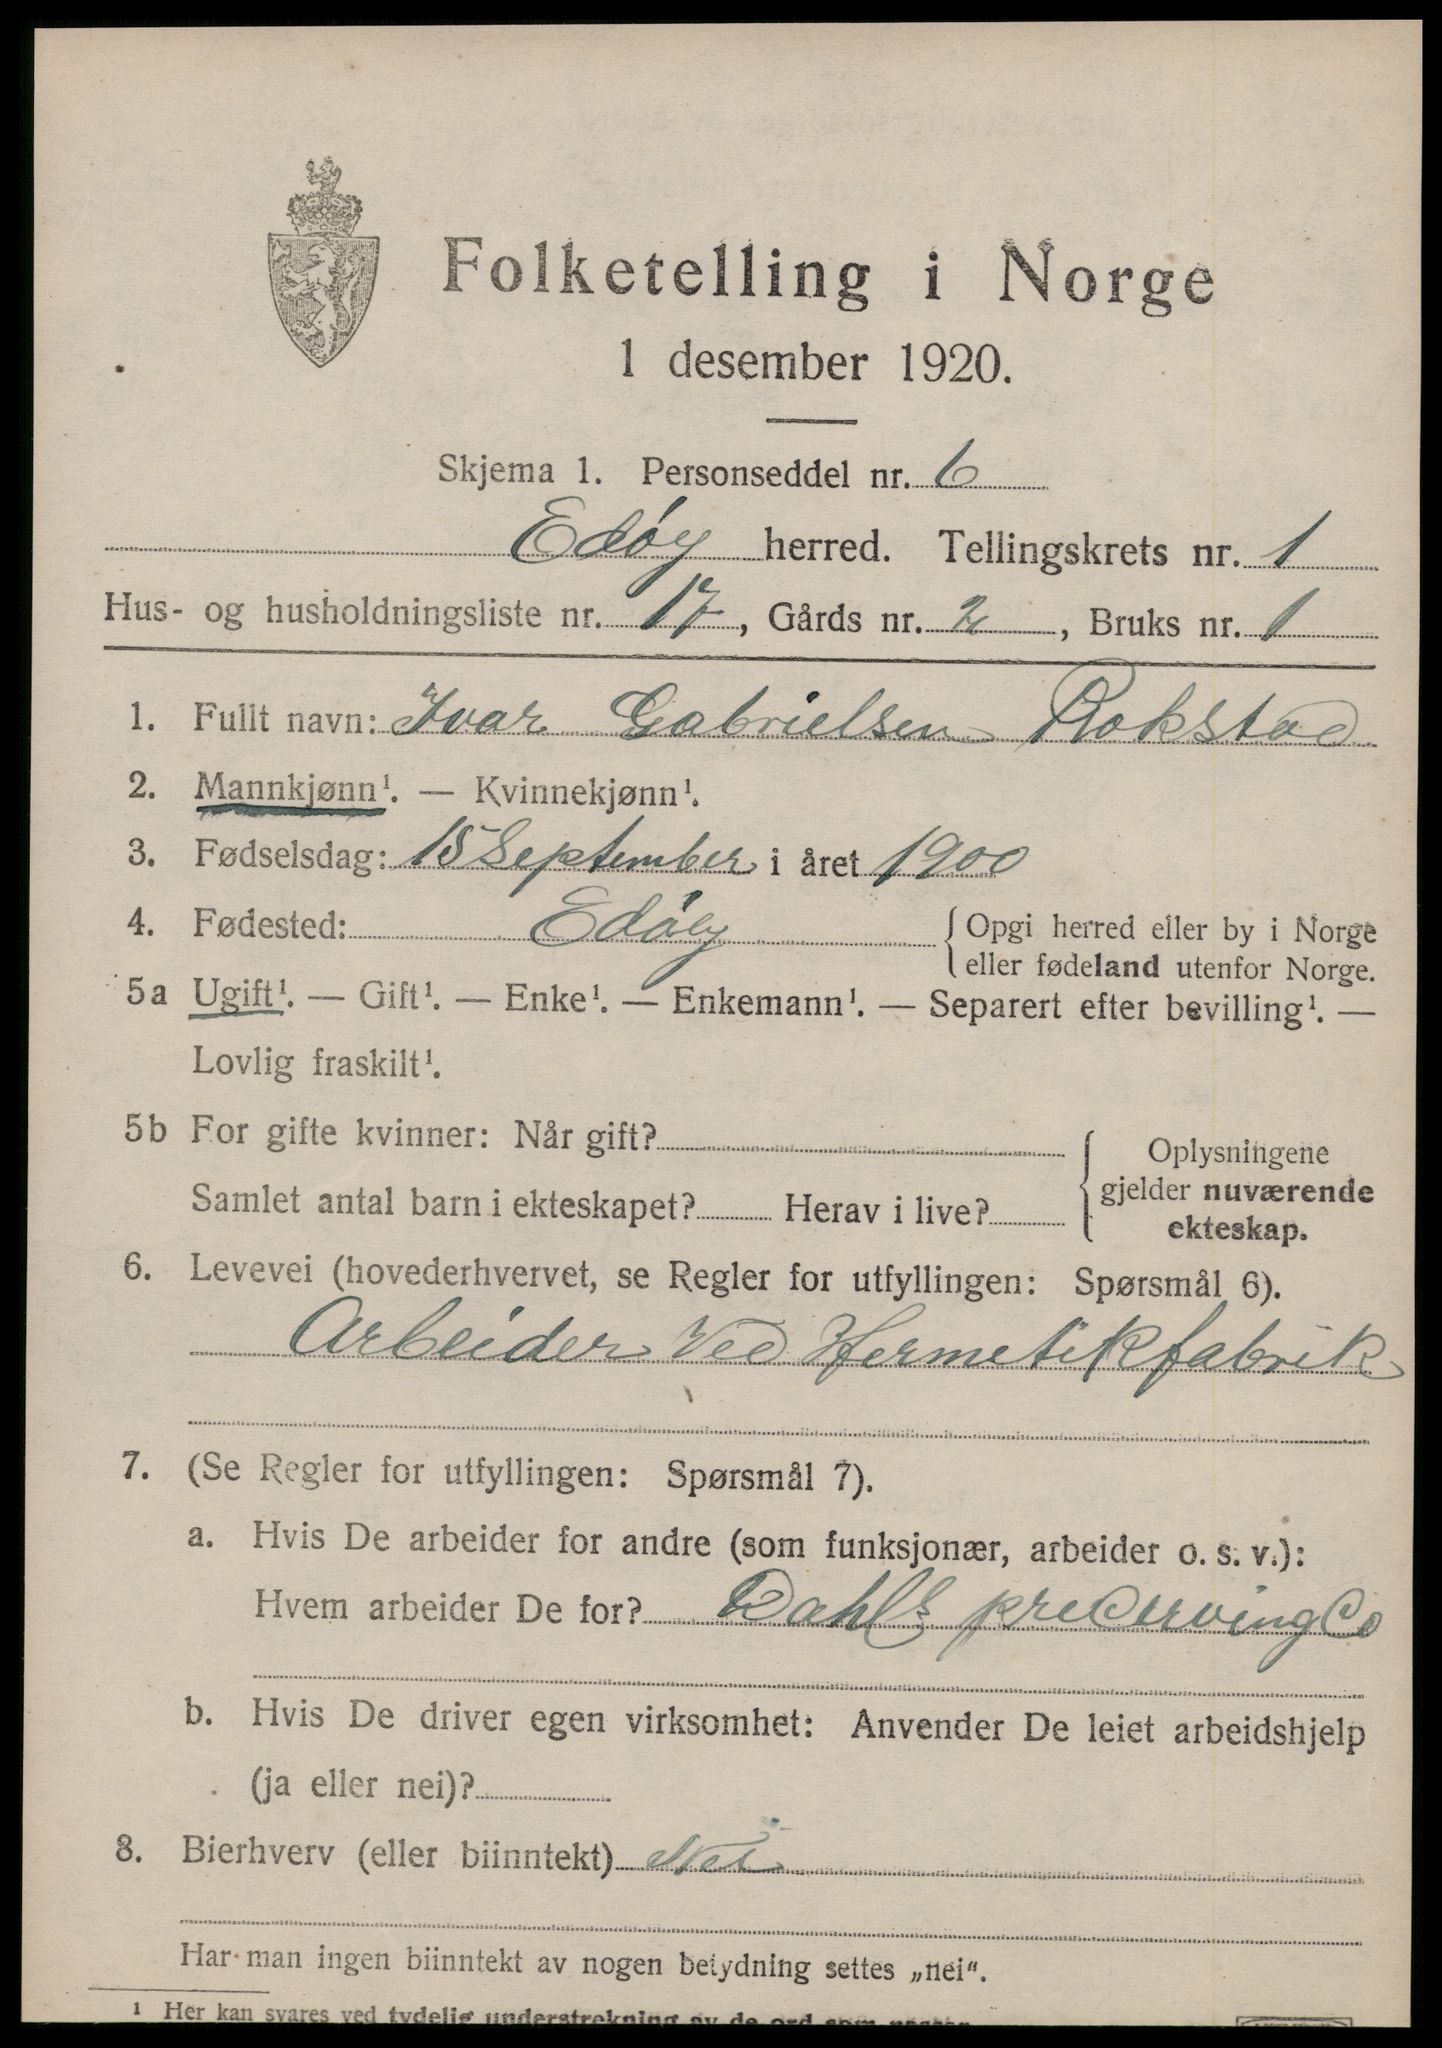 Folketelling i Norge
1 desember 1920.
Skjema 1. Personseddel nr. 6
Edøy herred. Tellingskrets nr. 1
Hus- og husholdningsliste nr. 17, Gårds nr. 2, Bruks nr. 1
1. Fullt navn: Ivar Gabrielsen Rokstad
2. Mannkjønn¹. — Kvinnekjønn¹.
3. Fødselsdag: 15 September i året 1900
4. Fødested: Edøy { Opgi herred eller by i Norge
eller fødeland utenfor Norge.
5a Ugift¹. — Gift¹. — Enke¹. — Enkemann¹. — Separert efter bevilling¹. —
Lovlig fraskilt¹.
5b For gifte kvinner: Når gift? { Oplysningene
Samlet antal barn i ekteskapet? Herav i live? gjelder nuværende
ekteskap.
6. Levevei (hovederhvervet, se Regler for utfyllingen: Spørsmål 6).
Arbeider Ved Hermetikfabrik
7. (Se Regler for utfyllingen: Spørsmål 7).
a. Hvis De arbeider for andre (som funksjonær, arbeider o. s. v.):
Hvem arbeider De for? Dahls precerving Co
b. Hvis De driver egen virksomhet: Anvender De leiet arbeidshjelp
(ja eller nei)?
8. Bierhverv (eller biinntekt) Nei
Har man ingen biinntekt av nogen betydning settes „nei“.
1 Her kan svares ved tydelig understrekning av de ord som passer.